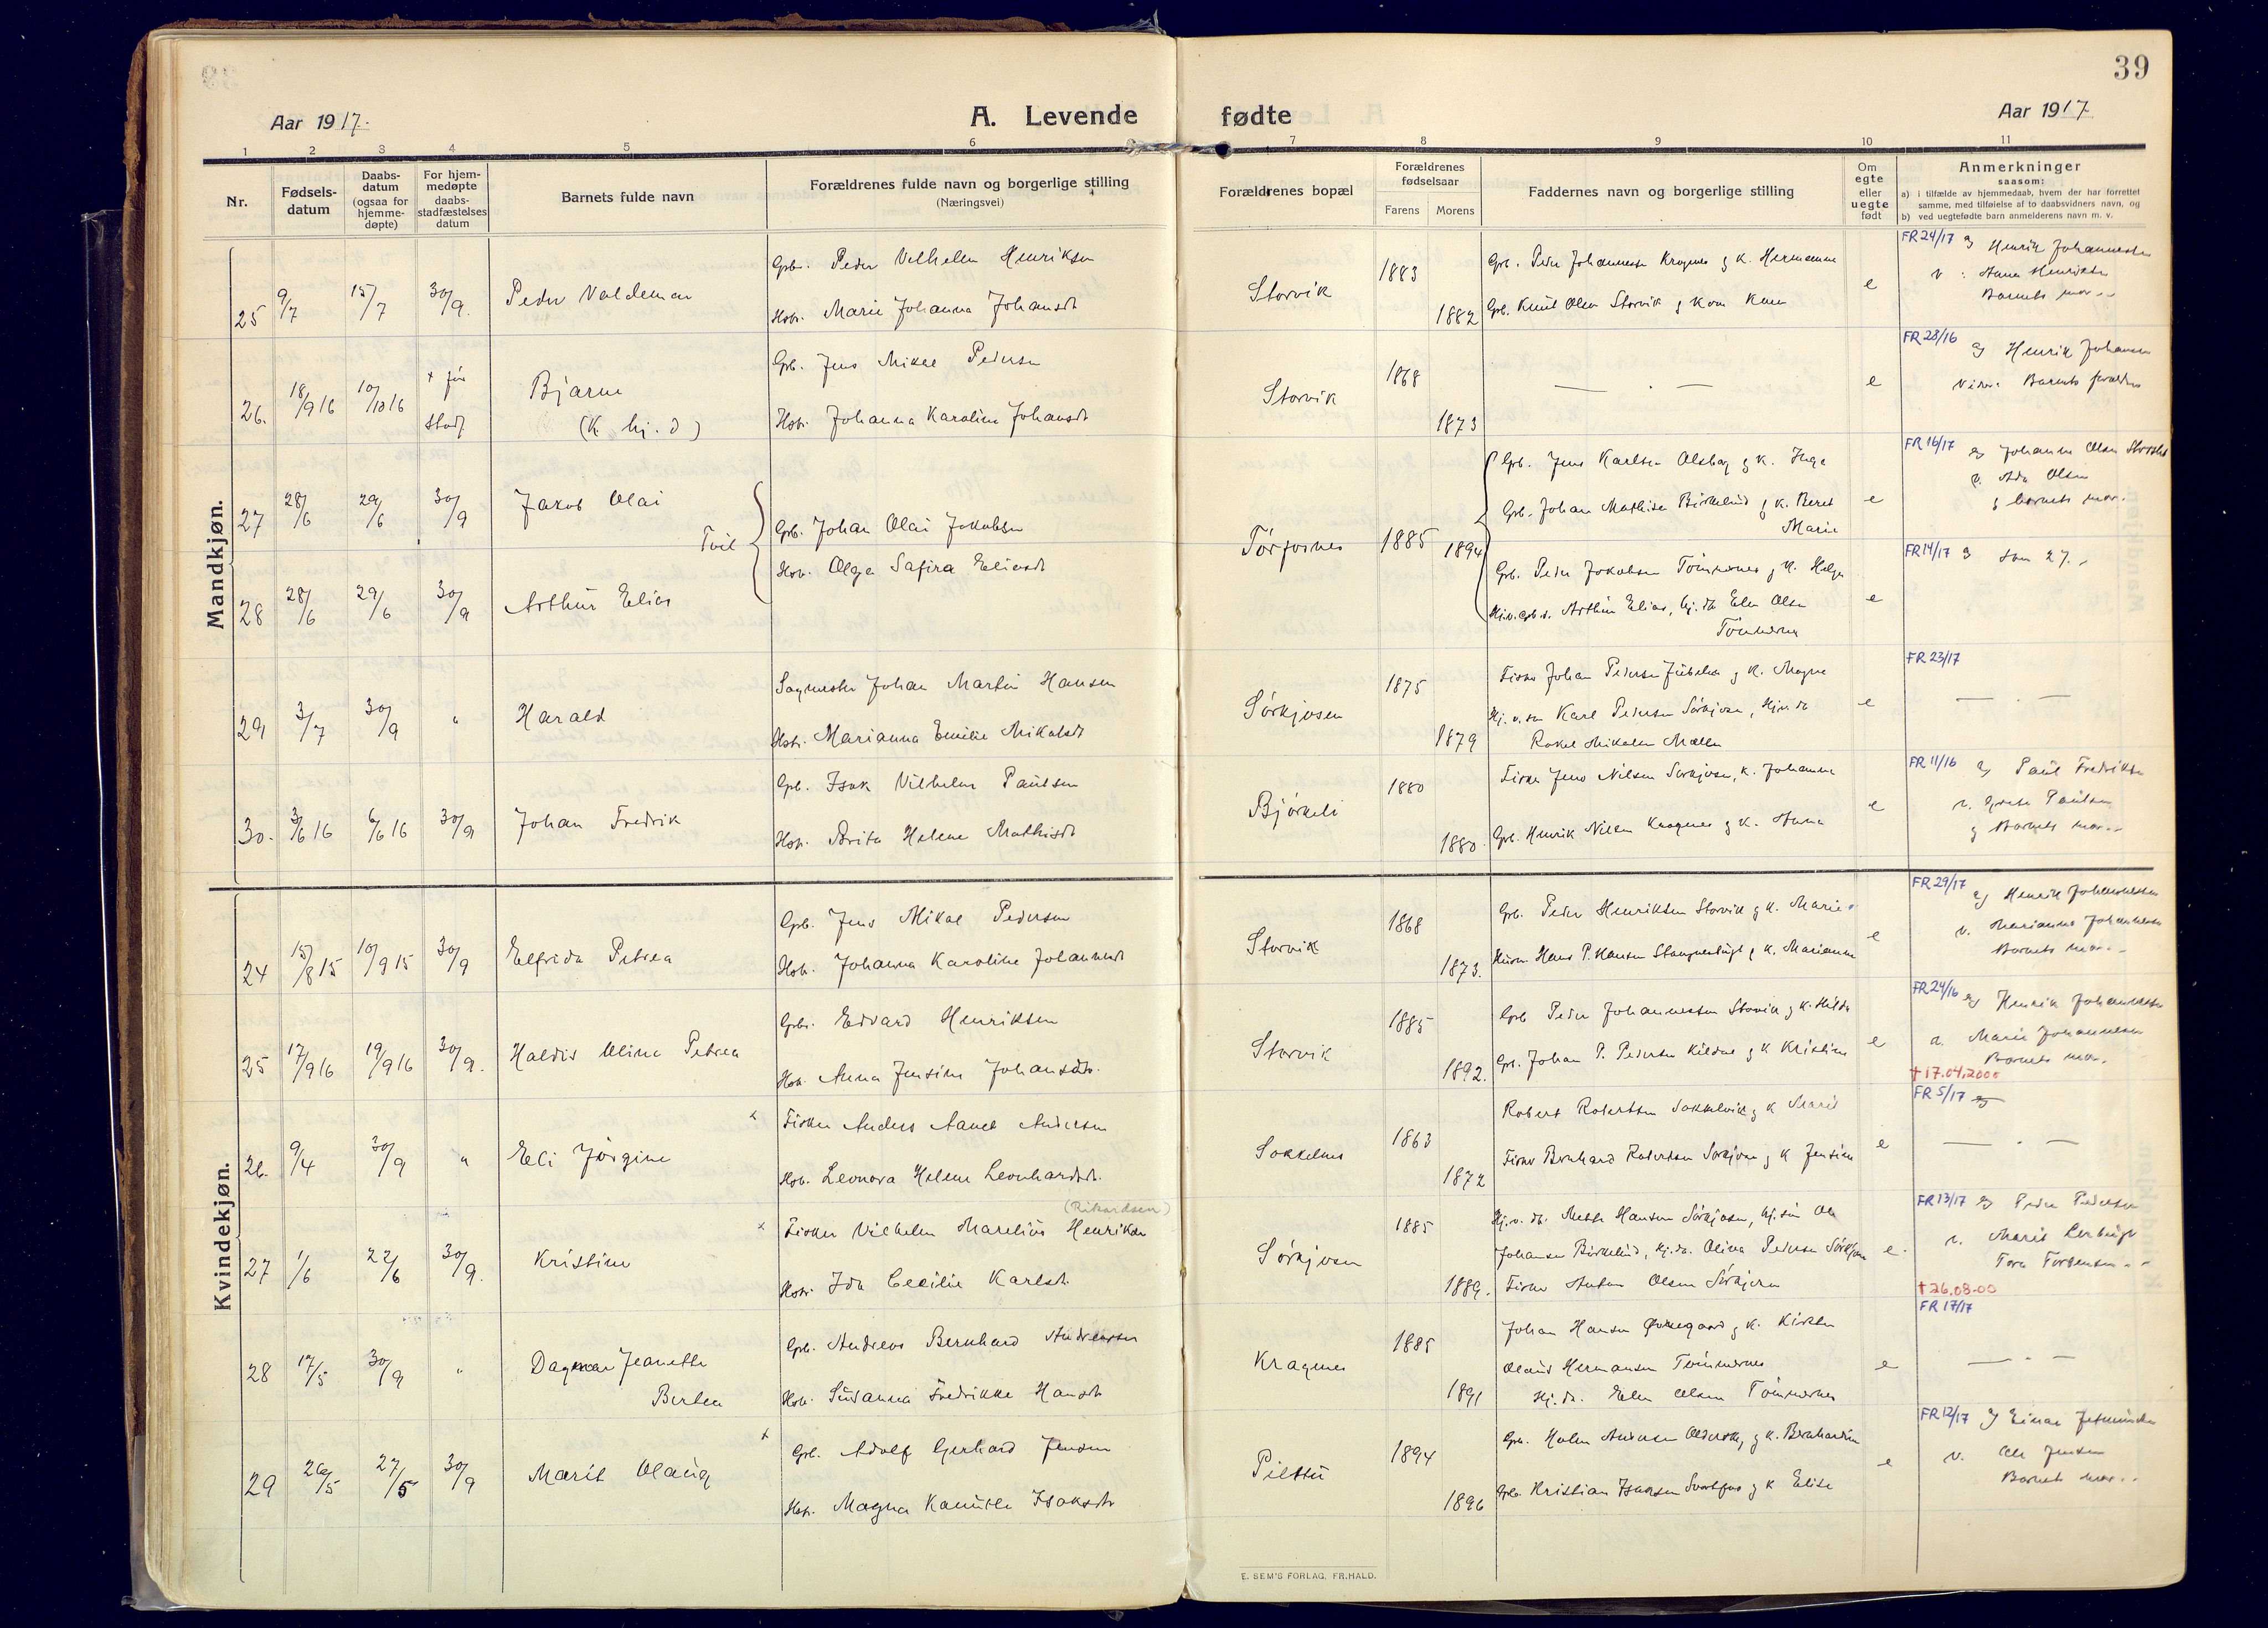 39
Aar 1917.
A. Levende
fødte
Aar 1917
1 2 3 4 5 6 7 8 9 10 11
Nr.
Fødsels-
datum
Daabs-
datum
(ogsaa for
hjemme-
døpte)
For hjem-
medøpte
daabs-
stadfæstelses
datum
Barnets fulde navn
Forældrenes fulde navn og borgerlige stilling
(Næringsvei)
Forældrenes bopæl
Forældrenes
fødselsaar
Farens Morens
Faddernes navn og borgerlige stilling
Om
egte
eller
uegte
født
Anmerkninger
saasom:
a) i tilfælde av hjemmedaab, hvem der har forrettet
samme, med tilføielse af to daabsvidners navn, og
b) ved uegtefødte barn anmelderens navn m. v.
Mandkjøn.
25 9/7 15/7 30/9. Peder Valdemar
Gbr. Peder Vilhelm Henriksen
Hstr. Marie Johanna Johansdt
Storvik 1883 1882
Gbr. Peder Johannesen Kragnes g k. Hermanne
Gbr. Knut Olsen Storvik g kone Karen
e
FR 24/17 af Henrik Johannessen
v: Anna Henriksen
Barnets mor
26. 18/9 16 10/10 16 + før stadf
Bjarne
(K hj. d)
Gbr. Jens Mikal Pedersen
Hstr. Johanna Karoline Johansdt
Storvik 1868 1873
— . —
e
FR 28/16 af Henrik Johansen
Vidner Barnets forældre
27 28/6 29/6 30/9 Jakob Olai
Tvil
Gbr. Johan Olai Jakobsen
Hstr. Olga Safira Eliasdt
1885 1894
Gbr. Jens Karlsen Olsborg g k. Inga
Gbr. Johan Mathisen Birkelund g k. Beret
Marie
e
FR 16/17 af Johanne Olsen
v. Ada Olsen
g barnets mor.
28 28/6 29/6 30/9 Arthur Elias
Gbr. Peder Jakobsen Tømmernes g k. Helga
Arthur Elias, hj. dt. Elen Olsen
Tømmernes
e
FR 14/17 som 27.
29 3/7 30/9 " Harald
Johan Martin Hansen
Hstr. Marianna Emilie Mikalsdt
Sørkjosen 1875 1879
Fisker Johan Pedersen g k. Magna
Hj. v. søn Karl Pedersen Sørkjosen, Hj. v. dt
Rakel Mikalsen
e
FR 23/17
— . —
30. 3/6 16 6/6 16 30/9 Johan Fredrik
Gbr. Isak Vilhelm Paulsen
Hstr. Brita Helene Mathisdt
Bjørkeli 1880 1880
Fisker Jens Nilsen Sørkjosen, k. Johanna
Gbr. Henrik Nilsen Kragnes g k. Anna
e
FR 11/16 af Paul Fredriksen
v. Grete Paulsen
g Barnets mor
Kvindekjøn.
24 15/8 15 10/9 15 30/9 Elfrida Petrea
Gbr. Jens Mikal Pedersen
Hstr. Johanna Karoline Johannesdt
Storvik 1868 1873.
Gbr. Peder Henriksen Storvik g k. Marie
Hans P. Hansen g k. Marianne
e
FR 29/17 af Henrik Johannessen
v. Marianne Johannessen
Barnets mor
25 17/9 16 19/9 16 30/9. Haldis Olina Petrea
Gbr. Edvard Henriksen
Hstr. Anna Jensine Johansdtr.
Storvik 1885 1892.
Gbr Peder Johannessen Storvik g k. Hilda
Gbr. Johan P. Pedersen Kildal g k Kristine
e
FR 24/16 af Henrik Johannessen
v. Marie Johannessen
Barnets mor.
†17.04.2000
26. 9/4 30/9 " Eli Jørgine
Fisker Anders Aanel Andersen
Hstr. Leonora Helene Leonhardsdt.
Sokkelnes 1863 1872
Robert Robertsen Sokkelvik g k Marit
Fisker Bernhard Robertsen Sørkjosen g k Jensine
e
FR 5/17
— . —
27 1/6 22/6 30/9. Kristine
(Rikardsen)
Fisker Vilhelm Marelius Henriksen
Hstr. Ida Cecilie Karlsdt.
Sørkjosen 1885 1889.
Hj. v. dt. Mette Hansen Sørkjosen, hj. søn Ole
Johansen Birkelund, hj. dt. Olina Pedersen Sørkjosen
Fisker Anton Olsen Sørkjosen
e.
FR 13/17 af Peder Pedersen
v. Marit Lerbugt
Tora Torgensen
†26.08.00
28 17/5 30/9 " Dagmar Jeanette
Bertea
Gbr. Andreas Bernhard Andreassen
Hstr. Susanna Fredrikke Hansdt
Kragnes 1885 1891
Johan Hansen g k. Kirsten
Olaus Hermansen Tømmernes
Hj. dt. Elen Olsen Tømmernes
e
FR 17/17
— . —
29 26/5 27/5 30/9 Marit Olaug
Gbr. Adolf Gerhard Jensen
Hstr. Magna Kamilla Isaksdt
Pilttu 1894 1896
Gbr. Holm Andersen g k. Bernhardine
Gbr. Kristian Isaksen Svartfos g k Elise
e
FR 12/17 af Einar
v. Ole Jensen
Barnets mor
E. SEM'S FORLAG, FR.HALD.